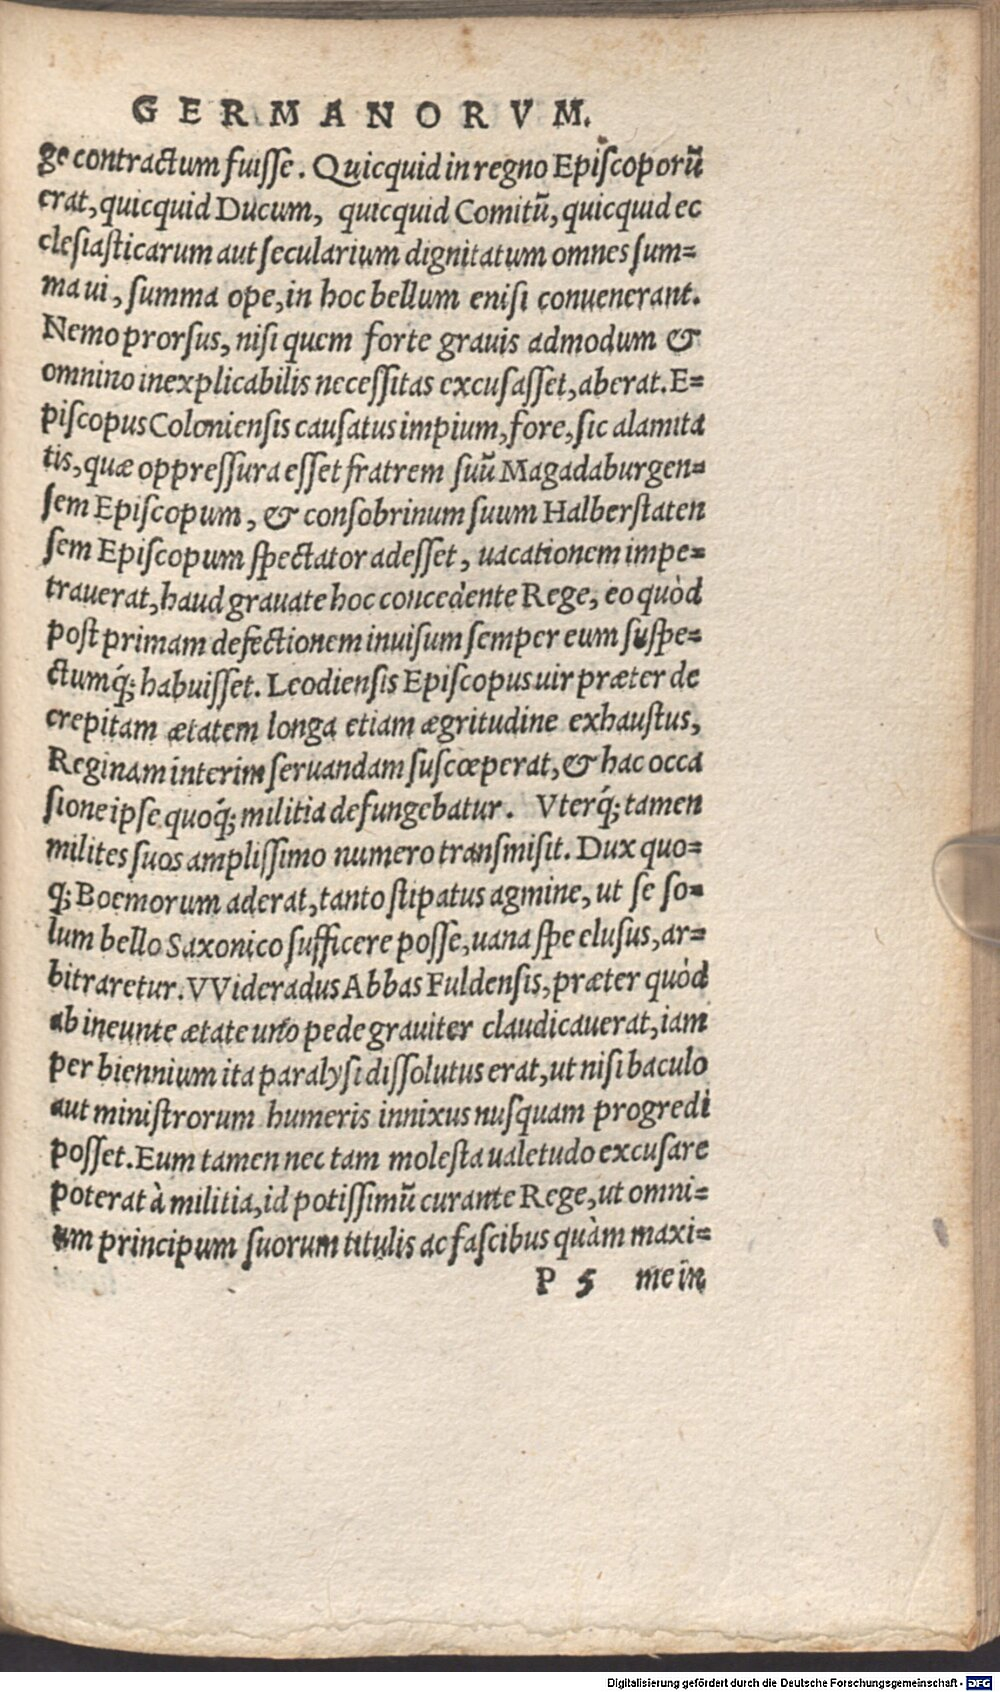 GERMANORVM.
ge contractum fuisse. Quicquid in regno Episcoporũ
erat, quicquid Ducum, quicquid Comitũ, quicquid ec
clesiasticarum aut secularium dignitatum omnes sum=
ma ui, summa ope, in hoc bellum enisi convenerant.
Nemo prorsus, nisi quem forte grauis admodum &
omnino inexplicabilis necessitas excusasset, aberat. E=
piscopus Coloniensis causatus impium, fore, sic alamita
tis, quæ oppressura esset fratrem suũ Magadaburgen=
sem Episcopum, & consobrinum suum Halberstaten
sem Episcopum spectator adesset, uacationem impe=
trauerat, haud grauate hoc concedente Rege, eo quòd
post primam defectionem inuisum semper eum suspe=
ctumq́; habuisset. Leodiensis Episcopus uir præter de
crepitam ætatem longa etiam ægritudine exhaustus,
Reginam interim seruandam suscœperat, & hac occa
sione ipse quoq́; militia defungebatur. Vterq́; tamen
milites suos amplissimo numero transmisit. Dux quo=
q; Boemorum aderat, tanto stipatus agmine, ut se so=
lum bello Saxonico sufficere posse, uana spe elusus, ar=
bitraretur. VVideradus Abbas Fuldensis, præter quòd
ab ineunte ætate uno pede grauiter claudicauerat, iam
per biennium ita paralysi dissolutus erat, ut nisi baculo
aut ministrorum humeris innixus nusquam progredi
posset. Eum tamen nec tam molesta ualetudo excusare
poterat à militia, id potissimũ curante Rege, ut omni=
um principum suorum titulis ac fascibus quàm maxi=
P 5 me in
Digitalisierung gefördert durch die Deutsche Forschungsgemeinschaft - DFG